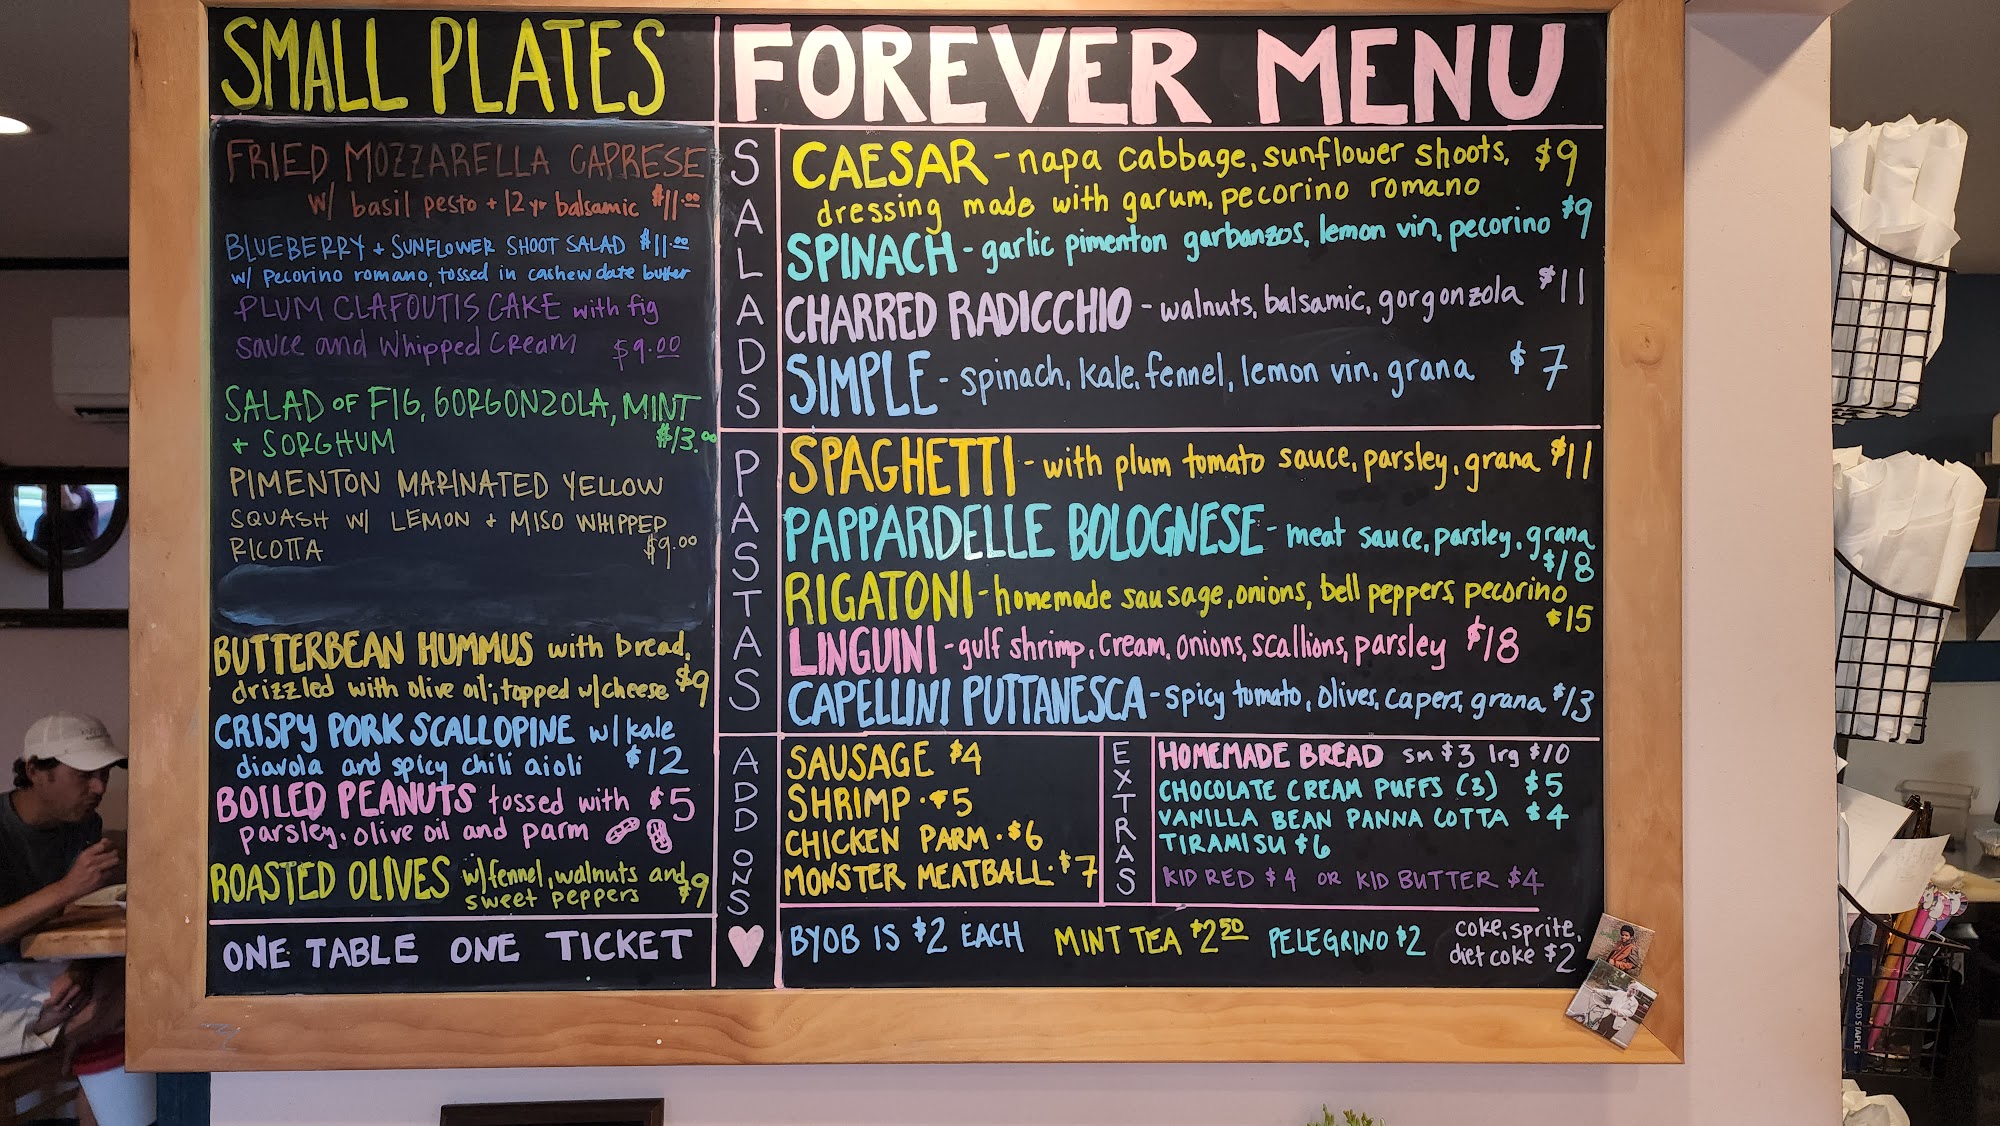 SMALL PLATES
FRIED MOZZARELLA CAPRESE
w/ basil pesto + 12 yr balsamic $11.00
BLUEBERRY + SUNFLOWER SHOOT SALAD $11.00
w/ Pecorino romano, tossed in cashew date butter
PLUM CLAFOUTIS CAKE with fig
sauce and whipped cream $9.00
SALAD OF FIG, GORGONZOLA, MINT
+ SORGHUM $13.00
PIMENTON MARINATED YELLOW
SQUASH W/ LEMON + MISO WHIPPED
RICOTTA $9.00
BUTTERBEAN HUMMUS with bread,
drizzled with olive oil; topped w/cheese $9
CRISPY PORK SCALLOPINE w/ kale
diavola and spicy chili aioli $12
BOILED PEANUTS tossed with $5
parsley, olive oil and parm
ROASTED OLIVES w/fennel, walnuts and $9
sweet peppers
ONE TABLE ONE TICKET
FOREVER MENU
SALADS
CAESAR - napa cabbage, sunflower shoots, $9
dressing made with garum, pecorino romano
SPINACH - garlic pimenton garbanzos, lemon vin, pecorino $9
CHARRED RADICCHIO - walnuts, balsamic, gorgonzola $11
SIMPLE - spinach, kale, fennel, lemon vin, grana $7
PASTAS
SPAGHETTI - with plum tomato sauce, parsley, grana $11
PAPPARDELLE BOLOGNESE - meat sauce, parsley, grana
$18
RIGATONI - homemade sausage, onions, bell peppers, pecorino
$15
LINGUINI - gulf shrimp, cream, onions, scallions, parsley $18
CAPELLINI PUTTANESCA - spicy tomato, olives, capers, grana $13
ADD ONS
SAUSAGE $4
SHRIMP · $5
CHICKEN PARM · $6
MONSTER MEATBALL · $7
EXTRAS
HOMEMADE BREAD sm $3 lrg $10
CHOCOLATE CREAM PUFFS (3) $5
VANILLA BEAN PANNA COTTA $4
TIRAMISU $6
KID RED $4 OR KID BUTTER $4
BYOB IS $2 EACH MINT TEA $2.50 PELEGRINO $2
coke, sprite,
diet coke $2
STANDARD STAPLES